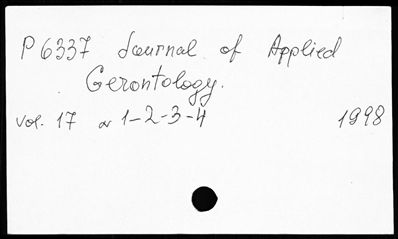 P 6337 Journal of Applied
Gerontology.
vol. 17 nr 1-2-3-4 1998